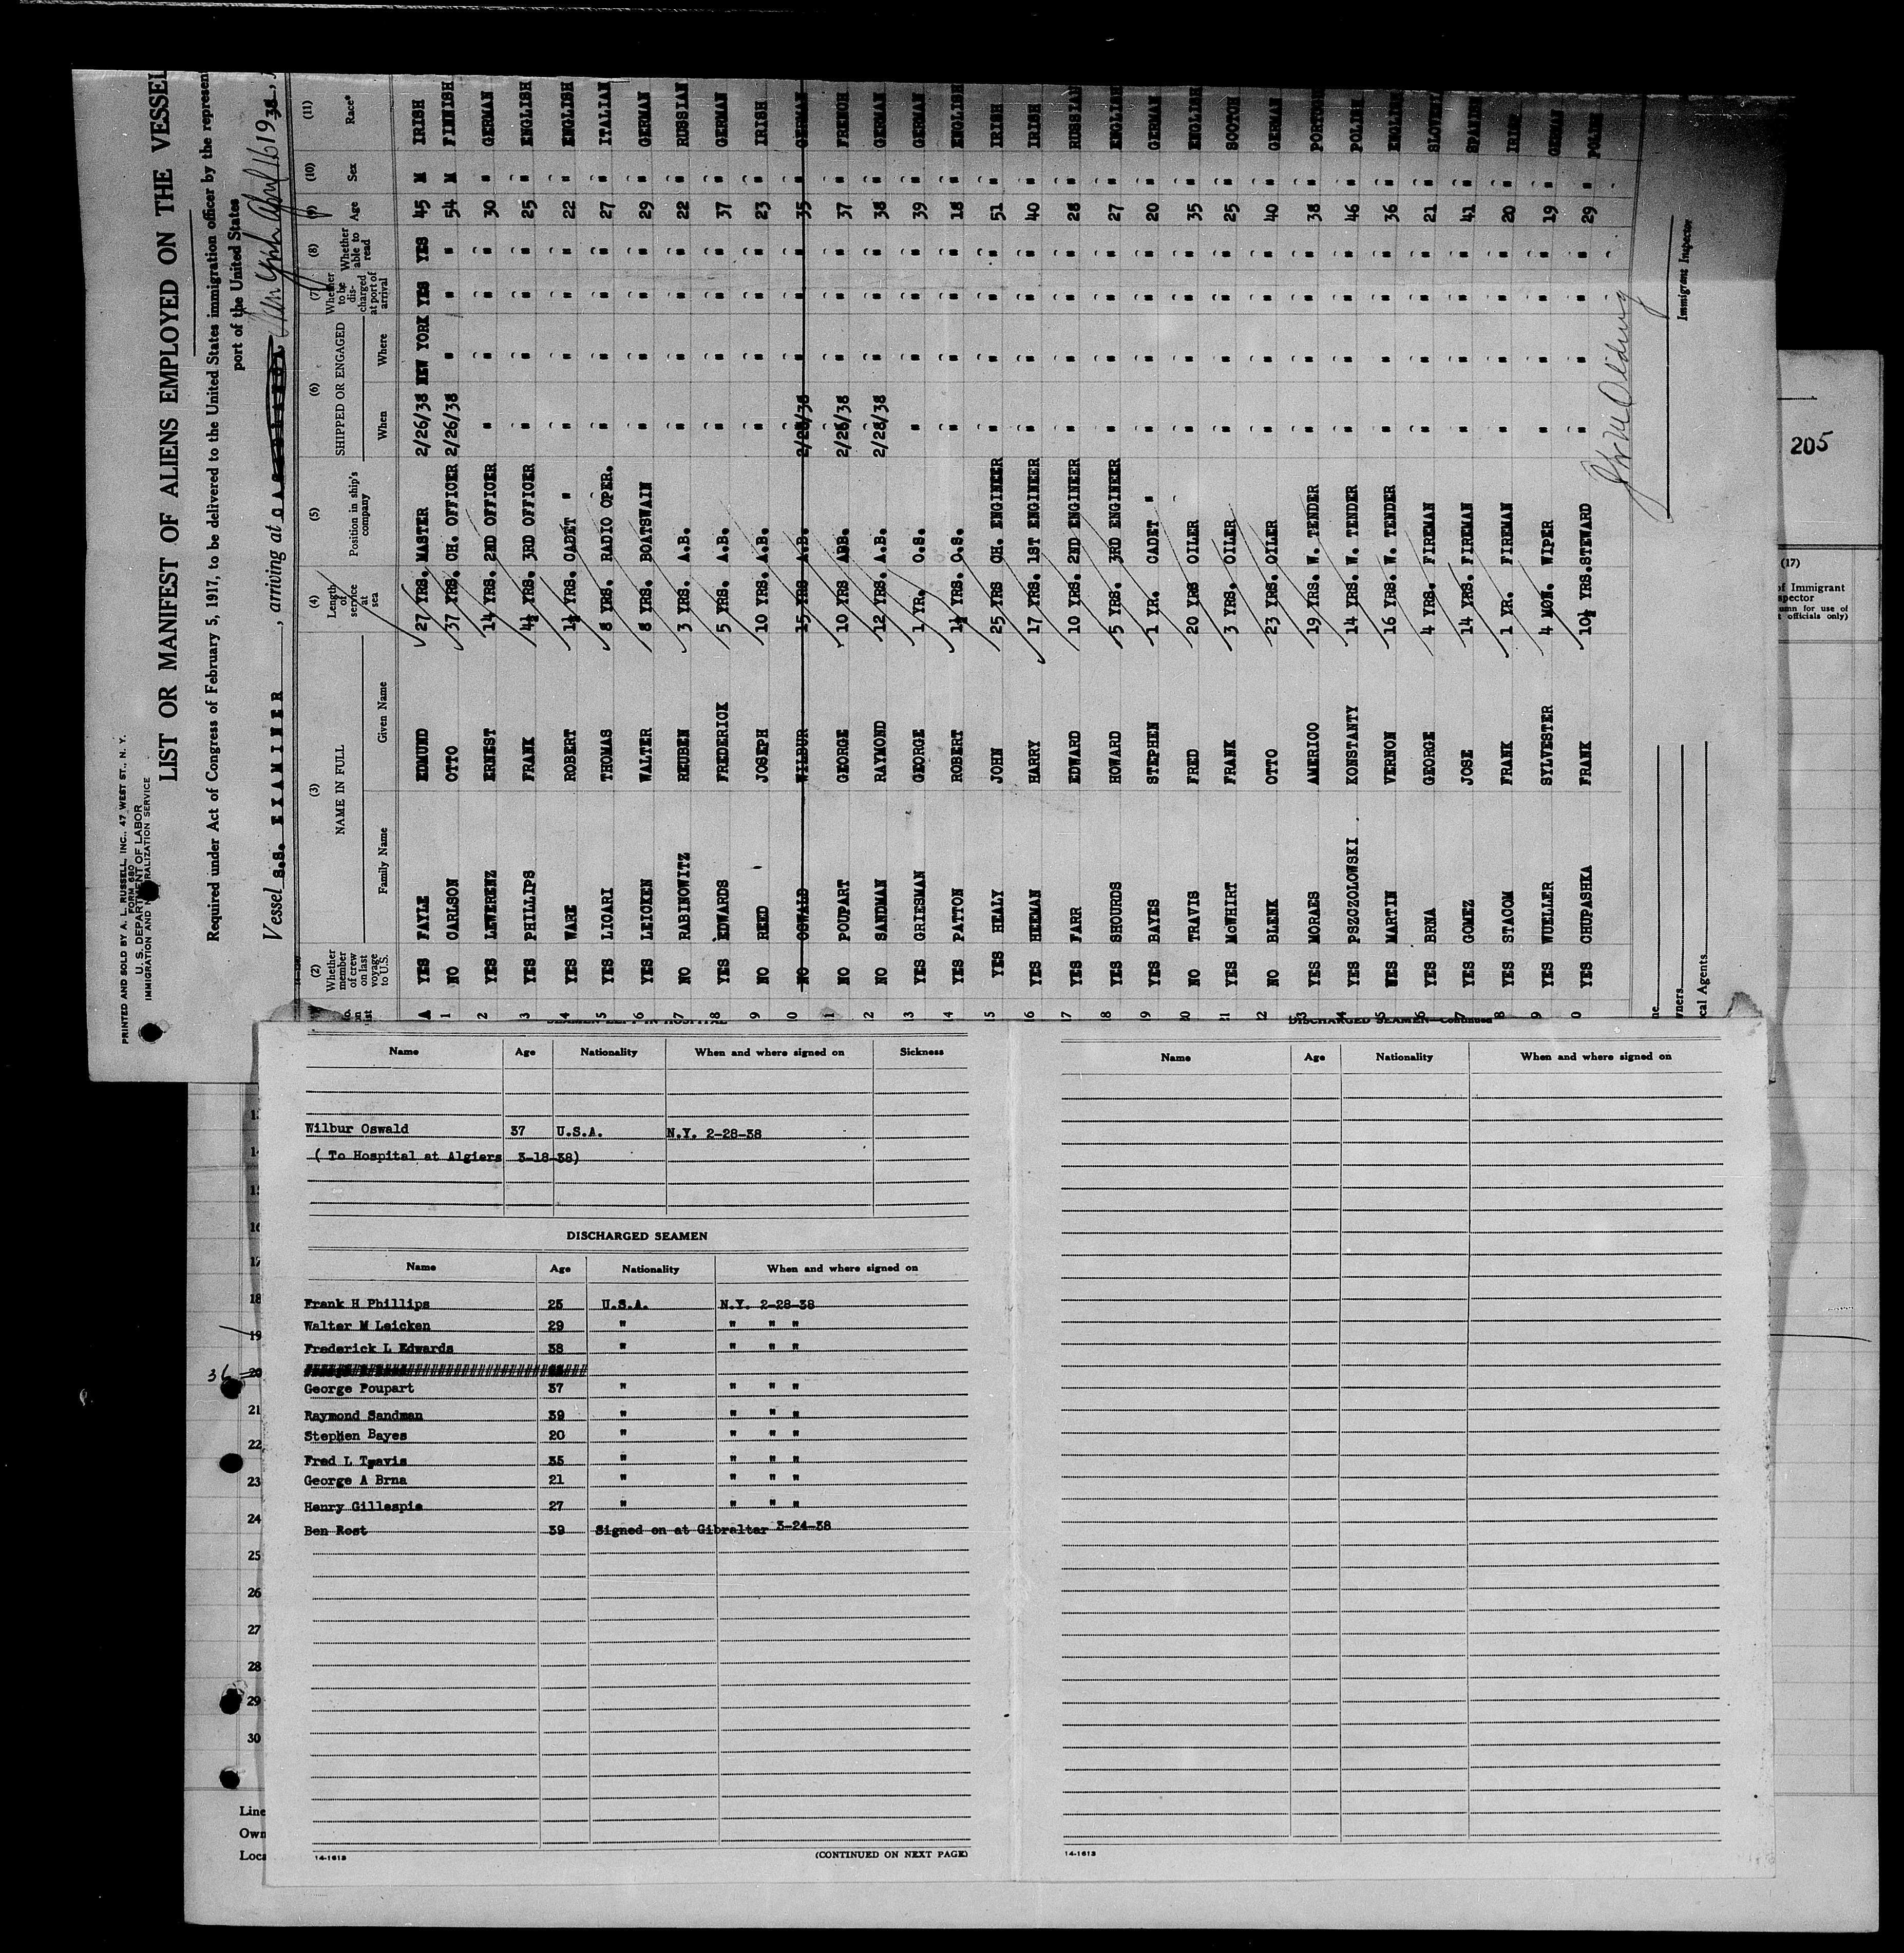 PRINTED AND SOLD BY A. L. RUSSELL, INC., 47 WEST ST., N. Y.
FORM 680
U. S. DEPARTMENT OF LABOR
IMMIGRATION AND NATURALIZATION SERVICE
LIST OR MANIFEST OF ALIENS EMPLOYED ON THE VESSEL
Required under Act of Congress of February 5, 1917, to be delivered to the United States immigration officer by the represen
port of the United States
Vessel S.S. EXAMINER, arriving at New York April 16 1938,
(2) (3) (4) (5) (6) (7) (8) (9) (10) (11)
Whether member of crew on last voyage to U.S. NAME IN FULL Family Name Given Name Length of service at sea Position in ship's company SHIPPED OR ENGAGED When Where Whether to be discharged at port of arrival Whether able to read Age Sex Race*
A YES FAYLE EDMUND 27 YRS. MASTER 2/26/38 NEW YORK YES YES 45 M IRISH
1 NO CARLSON OTTO 37 YRS. CH. OFFICER 2/26/38 " " " 54 M FINNISH
2 YES LEWERENZ ERNEST 14 YRS. 2ND OFFICER " " " " 30 " GERMAN
3 YES PHILLIPS FRANK 4½ YRS. 3RD OFFICER " " " " 25 " ENGLISH
4 YES WARE ROBERT 1½ YRS. CADET " " " " " 22 " ENGLISH
5 YES LICARI THOMAS 8 YRS. RADIO OPER. " " " " 27 " ITALIAN
6 YES LEICKEN WALTER 8 YRS. BOATSWAIN " " " " 29 " GERMAN
7 NO RABINOWITZ REUBEN 3 YRS. A.B. " " " " 22 " RUSSIAN
8 YES EDWARDS FREDERICK 5 YRS. A.B. " " " " 37 " GERMAN
9 NO REED JOSEPH 10 YRS. A.B. " " " " 23 " IRISH
0 NO OSWALD WILBUR 15 YRS A.B. 2/28/38 " " " 35 " GERMAN
11 NO POUPART GEORGE 10 YRS ABB. 2/28/38 " " " 37 " FRENCH
2 NO SANDMAN RAYMOND 12 YRS. A.B. 2/28/38 " " " 38 " GERMAN
13 YES GRIESMAN GEORGE 1 YR. O.S. " " " " 39 " GERMAN
14 YES PATTON ROBERT 1½ YRS. O.S. " " " " 18 " ENGLISH
15 YES HEALY JOHN 25 YRS CH. ENGINEER " " " " 51 " IRISH
16 YES HEEMAN HARRY 17 YRS. 1ST ENGINEER " " " " 40 " IRISH
17 YES FARR EDWARD 10 YRS. 2ND ENGINEER " " " " 28 " RUSSIAN
18 YES SHOURDS HOWARD 5 YRS. 3RD ENGINEER " " " " 27 " ENGLISH
19 YES BAYES STEPHEN 1 YR. CADET " " " " " 20 " GERMAN
20 NO TRAVIS FRED 20 YRS OILER " " " " 35 " ENGLISH
21 YES McWHIRT FRANK 3 YRS. OILER " " " " 25 " SCOTCH
2 NO BLENK OTTO 23 YRS. OILER " " " " 40 " GERMAN
3 YES MORAES AMERICO 19 YRS. W. TENDER " " " " 38 " PORTUG
4 YES PSZCZOLOWSKI KONSTANTY 14 YRS. W. TENDER " " " " 46 " POLISH
5 WES MARTIN VERNON 16 YRS. W. TENDER " " " " 36 " ENGLISH
6 YES BRNA GEORGE 4 YRS. FIREMAN " " " " 21 " SLOVENI
7 YES GOMEZ JOSE 14 YRS. FIREMAN " " " " 41 " SPANISH
8 YES STACOM FRANK 1 YR. FIREMAN " " " " 20 " IRISH
9 YES WUELLER SYLVESTER 4 MON. WIPER " " " " 19 " GERMAN
0 YES CHUPASHKA FRANK 10½ YRS. STEWARD " " " " 29 " POLISH
Immigrant Inspector
ne
wners
cal Agents
205
(17)
of Immigrant
spector
umn for use of
t officials only)
SEAMEN LEFT IN HOSPITAL
Name Age Nationality When and where signed on Sickness
Wilbur Oswald 37 U.S.A. N.Y. 2-28-38
( To Hospital at Algiers 3-18-38)
DISCHARGED SEAMEN
Name Age Nationality When and where signed on
Frank H Phillips 25 U.S.A. N.Y. 2-28-38
Walter M Leicken 29 " " " "
Frederick L Edwards 38 " " " "
George Poupart 37 " " " "
Raymond Sandman 39 " " " "
Stephen Bayes 20 " " " "
Fred L Travis 35 " " " "
George A Brna 21 " " " "
Henry Gillespie 27 " " " "
Ben Rost 39 Signed on at Gibraltar 3-24-38
14-1613
(CONTINUED ON NEXT PAGE)
DISCHARGED SEAMEN—Continued
Name Age Nationality When and where signed on
14-1613
13
14
15
16
17
18
19
36
20
21
22
23
24
25
26
27
28
29
30
Line
Own
Loca